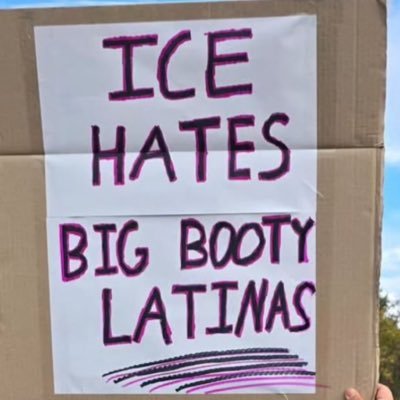 ICE
HATES
BIG BOOTY
LATINAS